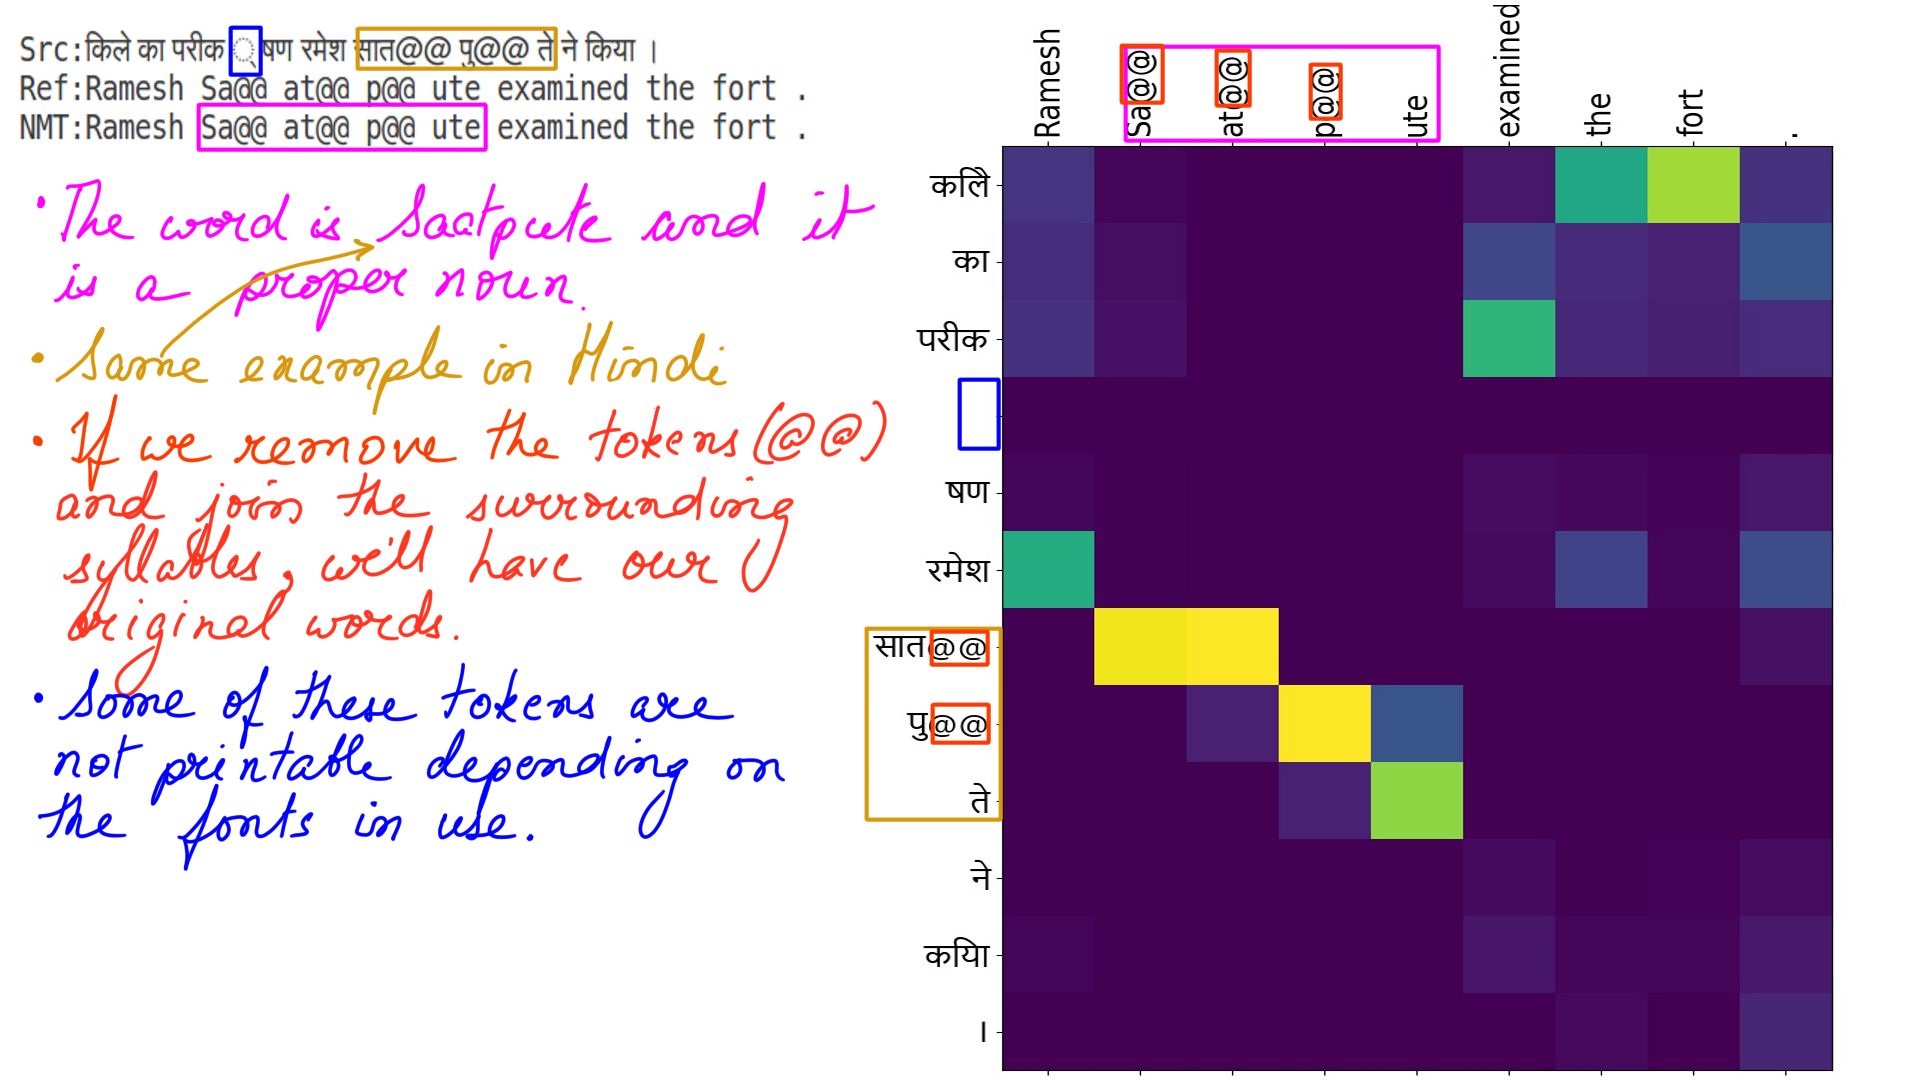 Src:किले का परीक ् षण रमेश सात@@ पु@@ ते ने किया ।
Ref:Ramesh Sa@@ at@@ p@@ ute examined the fort .
NMT:Ramesh Sa@@ at@@ p@@ ute examined the fort .
• The word is Saatpute and it
is a proper noun.
• Same example in Hindi
• If we remove the tokens (@@)
and join the surrounding
syllables, we'll have our
original words.
• Some of these tokens are
not printable depending on
the fonts in use.
Ramesh
Sa@@
at@@
p@@
ute
examined
the
fort
.
किले
का
परीक
षण
रमेश
सात@@
पु@@
ते
ने
किया
।